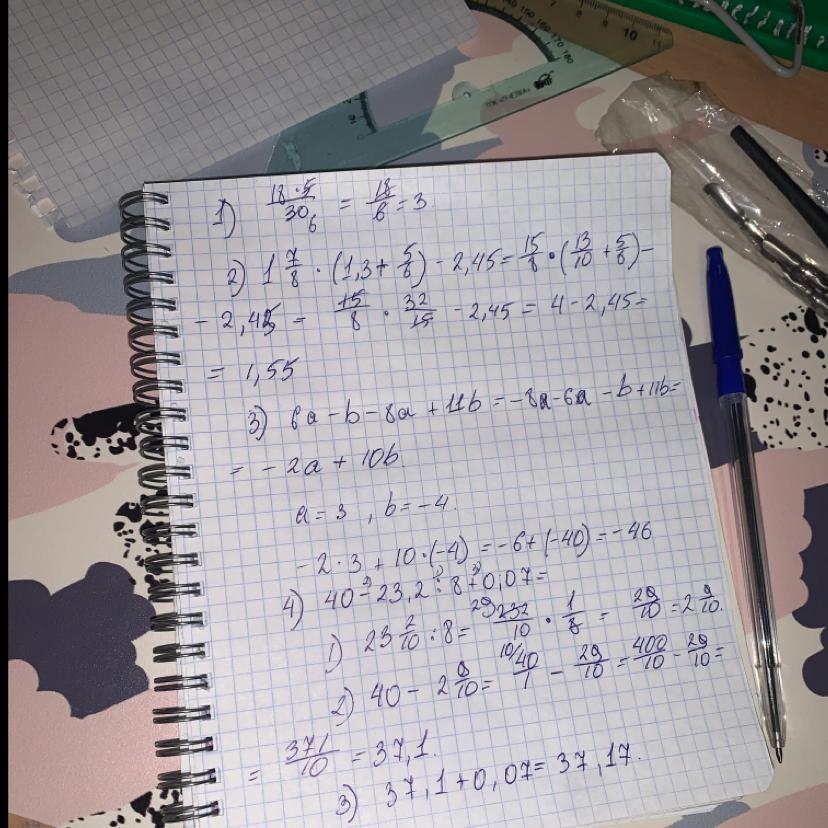 1) 18·5/30 6 = 18/6 = 3
2) 1 7/8 · (1,3 + 5/6) - 2,45 = 15/8 · (13/10 + 5/6) -
- 2,45 = 15/8 · 32/15 - 2,45 = 4 - 2,45 =
= 1,55
3) 6a - b - 8a + 11b = -8a - 6a - b + 11b =
= -2a + 10b.
a = 3, b = -4.
-2·3 + 10·(-4) = -6 + (-40) = -46
4) 40 - 23,2 : 8 + 0,07 =
1) 23 2/10 : 8 = 29 232/10 · 1/8 = 29/10 = 2 9/10.
2) 40 - 2 9/10 = 10/ 40/1 - 29/10 = 400/10 - 29/10 =
= 371/10 = 37,1.
3) 37,1 + 0,07 = 37,17.